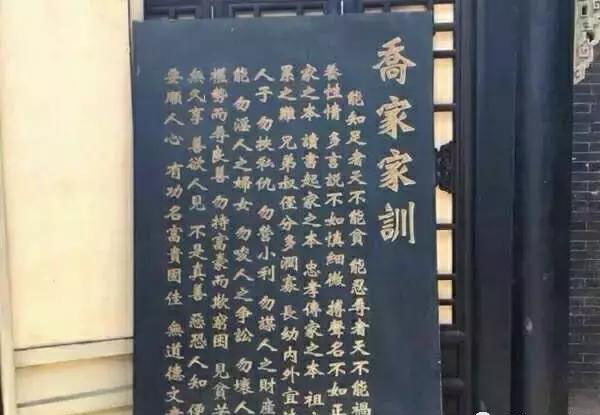 喬家家訓
能知足者天不能貧 能忍辱者天不能
養性情 多言說不如慎細微 博聲名不如正
家之本 讀書起家之本 忠孝傳家之本 祖
累之難 兄弟叔侄分多潤寡 長幼內外宜
人子 勿挾私仇 勿營小利 勿謀人之財產
能 勿淫人之婦女 勿唆人之爭訟 勿壞人
權勢而辱良善 勿恃富豪而欺窮困 見貧苦
無久享 善欲人見 不是真善 惡恐人知 便
要順人心 有功名富貴固佳 無道德文章